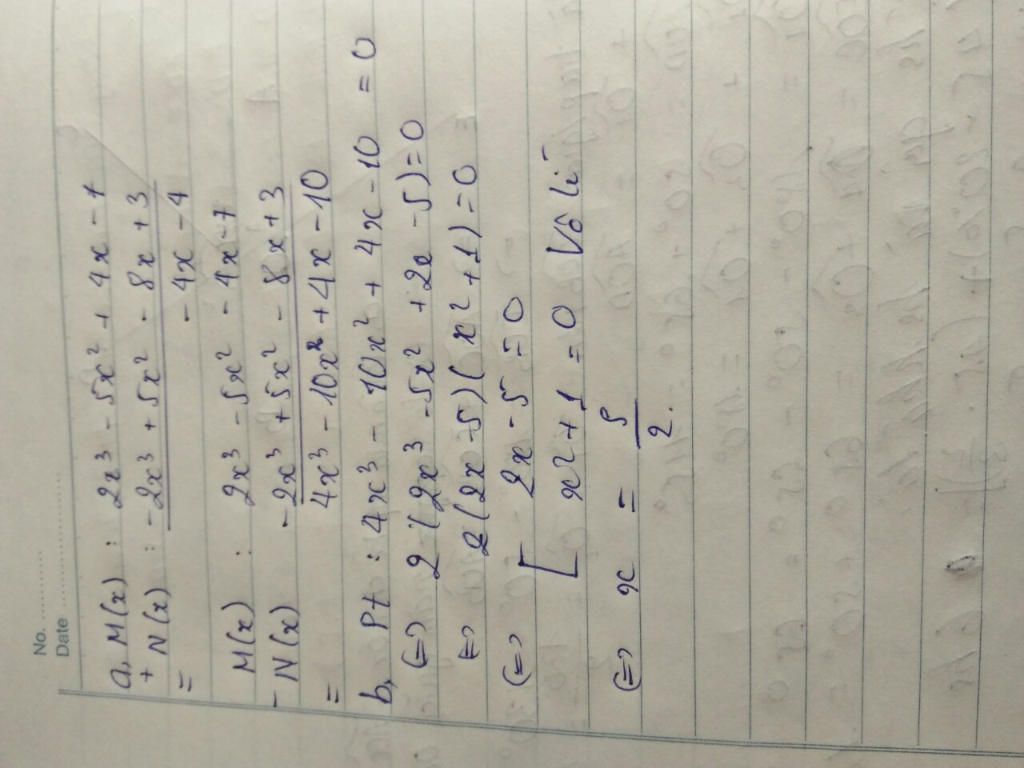 No. ............
Date ............
a, M(x) : 2x³ - 5x² + 4x - 7
+ N(x) : -2x³ + 5x² - 8x + 3
= - 4x - 4
M(x) : 2x³ - 5x² - 4x - 7
- N(x) -2x³ + 5x² - 8x + 3
= 4x³ - 10x² + 4x - 10
b, Pt : 4x³ - 10x² + 4x - 10 = 0
(=) 2 (2x³ - 5x² + 2x - 5) = 0
(=) 2(2x - 5)(x² + 1) = 0
(=) [ 2x - 5 = 0
x² + 1 = 0 Vô lí
(=) x = 5/2.